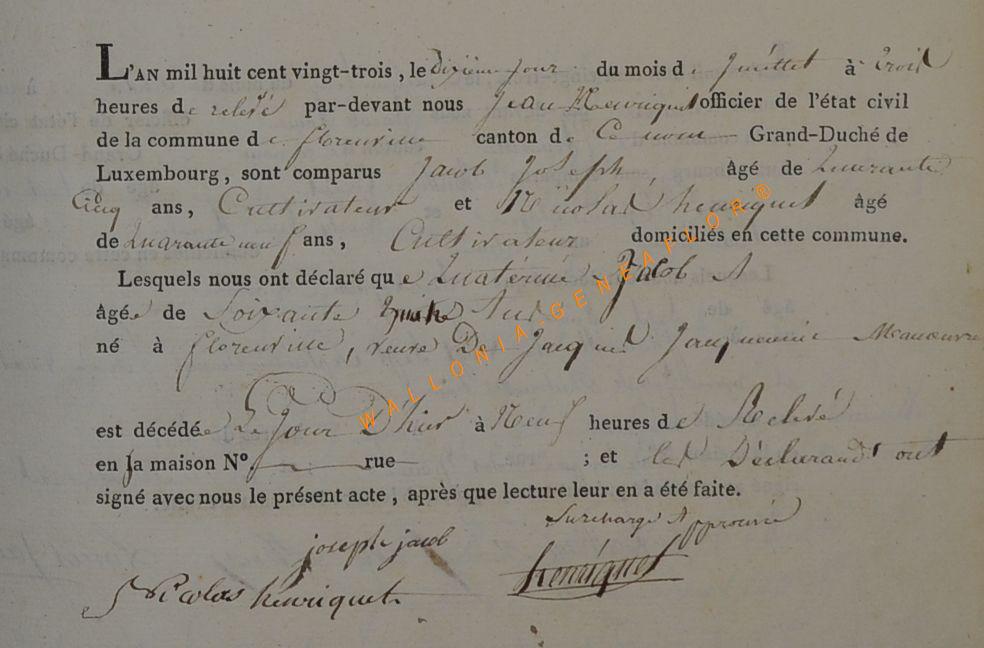 L'AN mil huit cent vingt-trois, le Dixieme jour du mois de Juillet à Trois
heures de relevé par-devant nous Jean Henriquet officier de l'état civil
de la commune de florenville canton de Ce nom Grand-Duché de
Luxembourg, sont comparus Jacob Joseph, âgé de Quarante
Cinq ans, Cultivateur et Nicolas henriquet âgé
de Quarante neuf ans, Cultivateur domiciliés en cette commune.
Lesquels nous ont déclaré que Jacob
âgée de Soixante Ans
né à florenville, veuve De Jacques Jacqueminé Manouvre
est décédée Le Jour D'hier à Neuf heures de Relevé
en la maison N° rue ; et les Déclarands ont
signé avec nous le présent acte, après que lecture leur en a été faite.
Surcharge Approuvée
joseph jacob
henriquet
Nicolas henriquet
WALLONIA.GENEAFLOR®